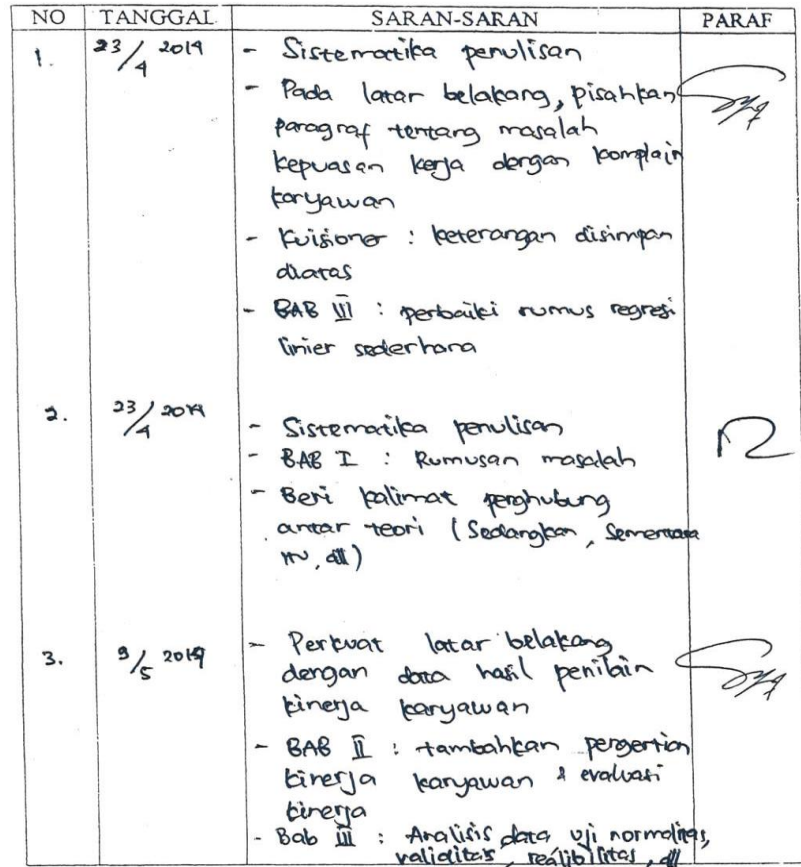 NO TANGGAL SARAN-SARAN PARAF
1. 23/4 2019 - Sistematika penulisan
- Pada latar belakang, pisahkan
paragraf tentang masalah
kepuasan kerja dengan komplain
karyawan
- Kuisioner : keterangan disimpan
diatas
- BAB III : perbaiki rumus regresi
linier sederhana
2. 23/4 2019 - Sistematika penulisan
- BAB I : Rumusan masalah
- Beri kalimat penghubung
antar teori (Sedangkan, Sementara
itu, dll)
3. 9/5 2019 - Perkuat latar belakang
dengan data hasil penilain
kinerja karyawan
- BAB II : tambahkan pengertian
kinerja karyawan & evaluasi
kinerja
- Bab III : Analisis data uji normalitas,
validitas, realibilitas, dll